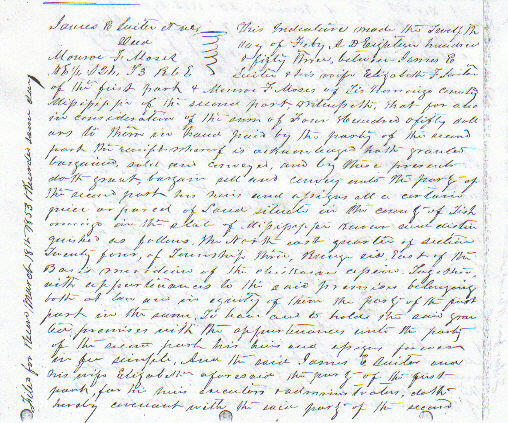 James E Suiter & wife
Deed
Monroe F Moses
This Indenture made the Twelfth
day of Feby A D Eighteen hundred
& fifty three, between James E
Suiter & his wife Elizabeth Suiter
of the first part & Monroe F Moses of Tishomingo County
Mississippi of the second part Witnesseth, that for and
in consideration of the sum of Four Hundred & fifty doll
ars to them in hand paid by the party of the second
part the receipt whereof is acknowledged hath granted
bargained, sold and conveyed, and by these presents
doth grant, bargain sell and convey unto the party of
the second part his heirs and assigns all a certain
piece or parcel of Land situate in the county of Tish
omingo in the state of Mississippi known and distin
guished as follows, The North east quarter of section
Twenty four, of Township three, Range six, East of the
Basis meridian of the chickasaw cession. Together
with appurtenances to the said premises belonging
both at law and in equity of them the party of the first
part in the same, To have and to hold the said gran
ted premises with the appurtenances unto the party
of the second part his heirs and assigns forever
in fee simple. And the said James E Suiter and
his wife Elizabeth aforesaid the party of the first
part, for the heirs executors & administrators, doth
hereby covenant with the said party of the second
Filed for Record March 18th 1853 & Recorded same day